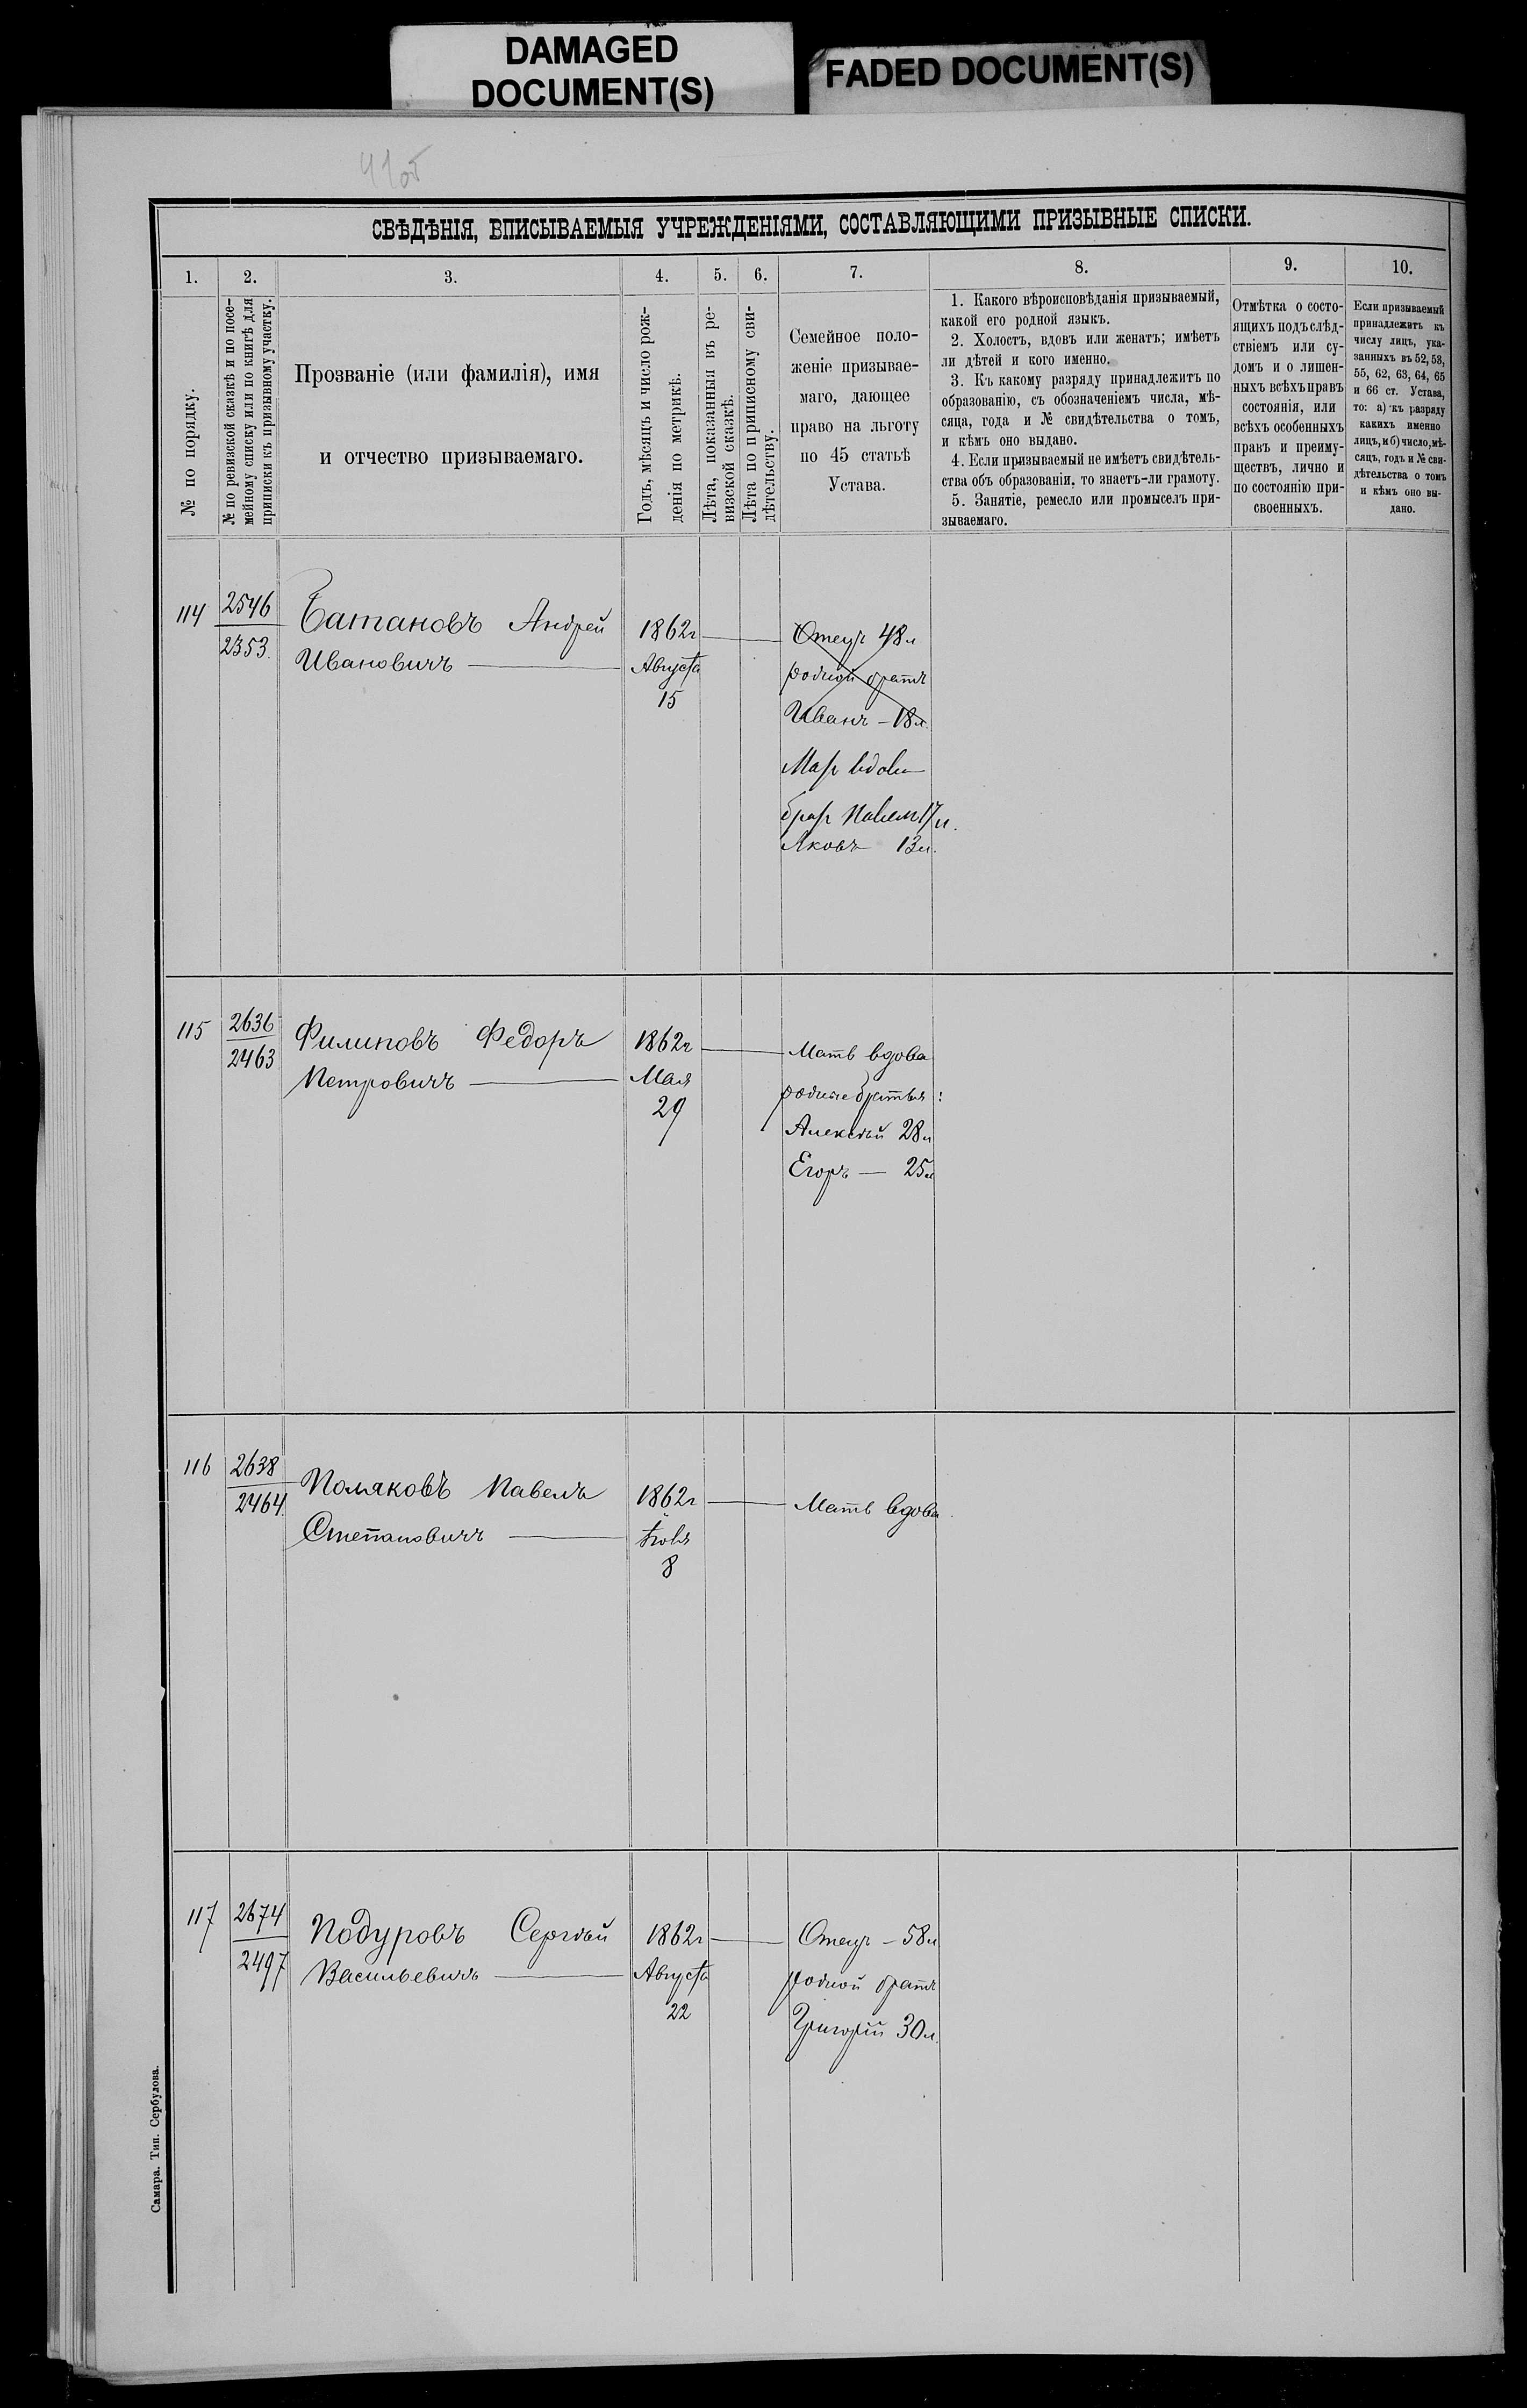 DAMAGED
DOCUMENT(S)
FADED DOCUMENT(S)
41об
СВѢДѢНІЯ, ВПИСЫВАЕМЫЯ УЧРЕЖДЕНІЯМИ, СОСТАВЛЯЮЩИМИ ПРИЗЫВНЫЕ СПИСКИ.
1.
2.
3.
4.
5.
6.
7.
8.
9.
10.
№ по порядку.
№ по ревизской сказкѣ и по посе-
мейному списку или по книгѣ для
приписки къ призывному участку.
Прозваніе (или фамилія), имя
и отчество призываемаго.
Годъ, мѣсяцъ и число рож-
денія по метрикѣ.
Лѣта, показанныя въ ре-
визской сказкѣ.
Лѣта по приписному сви-
дѣтельству.
Семейное поло-
женіе призывае-
маго, дающее
право на льготу
по 45 статьѣ
Устава.
1. Какого вѣроисповѣданія призываемый,
какой его родной языкъ.
2. Холостъ, вдовъ или женатъ; имѣетъ
ли дѣтей и кого именно.
3. Къ какому разряду принадлежитъ по
образованію, съ обозначеніемъ числа, мѣ-
сяца, года и № свидѣтельства о томъ,
и кѣмъ оно выдано.
4. Если призываемый не имѣетъ свидѣтель-
ства объ образованіи, то знаетъ-ли грамоту.
5. Занятіе, ремесло или промыселъ при-
зываемаго.
Отмѣтка о состо-
ящихъ подъ слѣд-
ствіемъ или су-
домъ и о лишен-
ныхъ всѣхъ правъ
состоянія, или
всѣхъ особенныхъ
правъ и преиму-
ществъ, лично и
по состоянію при-
своенныхъ.
Если призываемый
принадлежитъ къ
числу лицъ, ука-
занныхъ въ 52, 53,
55, 62, 63, 64, 65
и 66 ст. Устава,
то: а) къ разряду
какихъ именно
лицъ, и б) число, мѣ-
сяцъ, годъ и № сви-
дѣтельства о томъ
и кѣмъ оно вы-
дано.
114
2546
2353.
Батановъ Андрей
Ивановичъ
1862г
Августа
15
Отецъ 48л
родной братъ
Иванъ - 18л.
Мать вдова
братъ Павелъ 17л.
Яковъ 13л.
115
2636
2463
Филиповъ Федоръ
Петровичъ
1862г
Мая
29
Мать вдова
родные братья:
Алексѣй 28л
Егоръ — 25л
116
2638
2464.
Поляковъ Павелъ
Степановичъ
1862г
8
Мать вдова.
117
2674
2497
Подуровъ Сергѣй
Васильевичъ
1862г
Августа
22
Отецъ - 58л
родной братъ
Григорій 30л.
Самара. Тип. Сербулова.